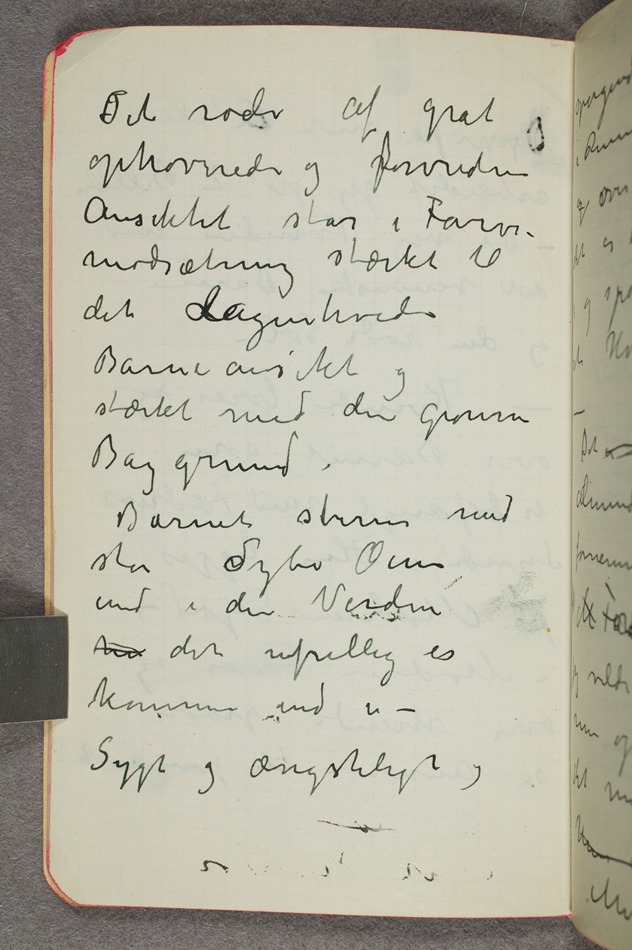 Det røde af gråt
ophovnede og forvredne
Ansiktet står i Farve-
modsætning stærkt til
det lagenhvide
Barneansikt og
stærkt mod den grønne
Baggrund.
Barnet stirrer med
store dybe Øine
ind i den Verden
det ufrillig er
kommen ind i –
Sygt og ængsteligt og